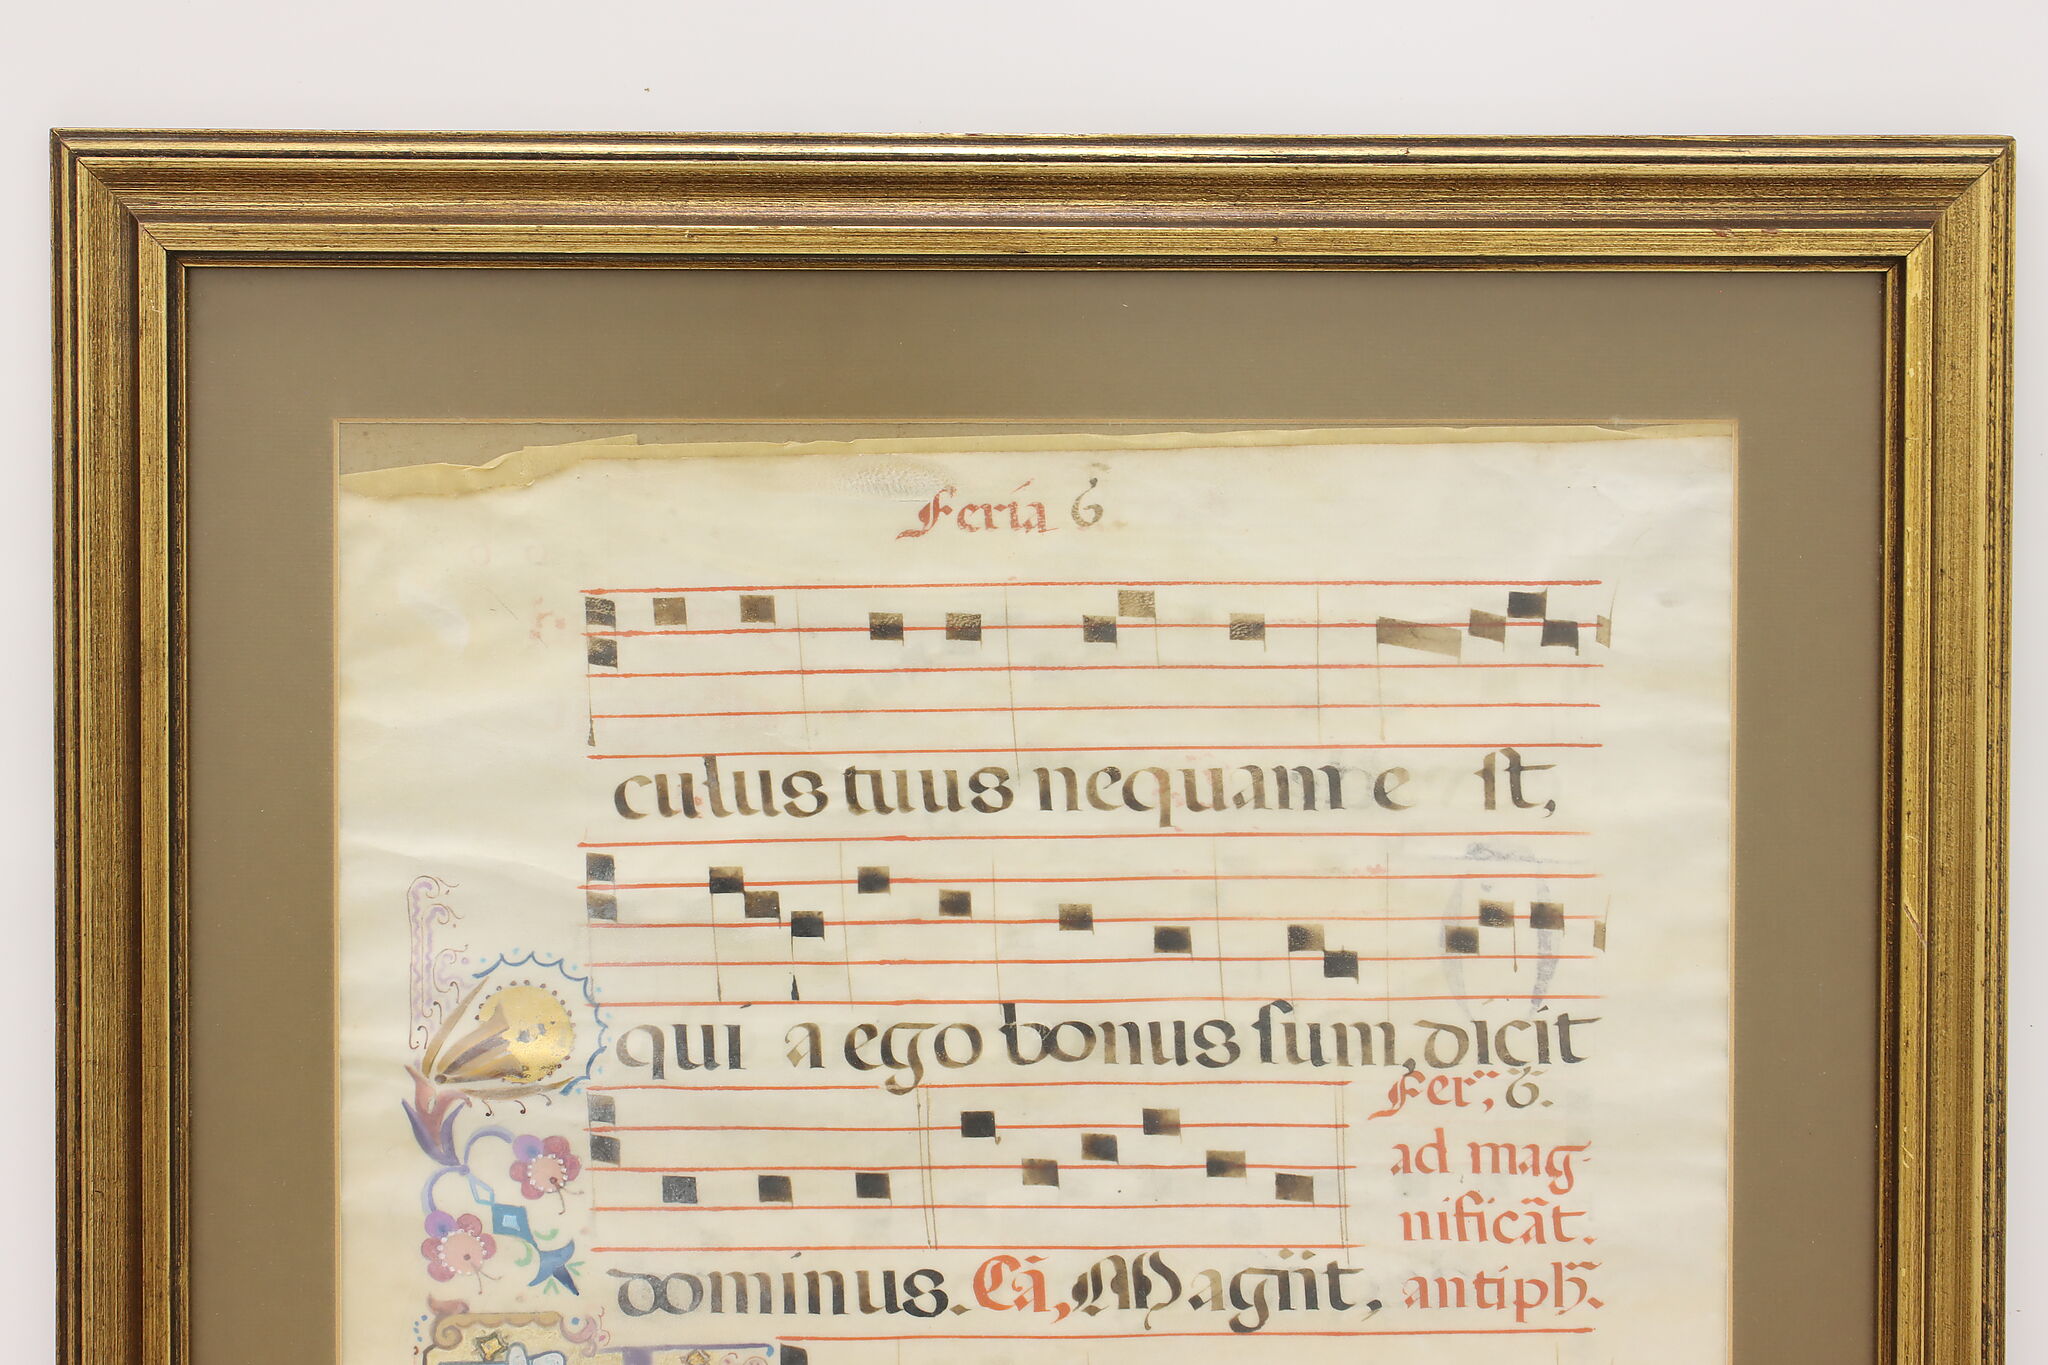 Feria 6
culus tuus nequam e st,
qui a ego bonus sum, dicit
Fer̈, 6̈.
ad mag-
nificãt.
dominus. Cã, Magñt, antiph̃.